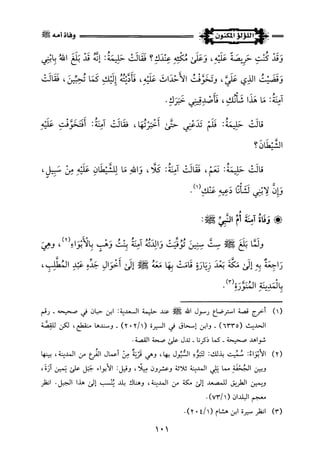 اللؤلؤ المكنون
وفاة أمه ﷺ
وَقَدْ كُنْتِ حَرِيصَةً عَلَيْهِ، وَعَلَىٰ مُكْثِهِ عِنْدَكِ؟ فَقَالَتْ حَلِيمَةُ: إِنَّهُ قَدْ بَلَغَ اللهُ بِابْنِي
وَقَضَيْتُ الذِي عَلَيَّ، وَتَخَوَّفْتُ الأَحْدَاثَ عَلَيْهِ، فَأَدَّيْتُهُ إِلَيْكِ كَمَا تُحِبِّينَ، فَقَالَتْ
آمِنَةُ: مَا هَذَا شَأْنُكِ، فَأَصْدِقِينِي خَبَرَكِ.
قالَتْ حَلِيمَةُ: فَلَمْ تَدَعْنِي حتَّىٰ أَخْبَرْتُهَا، فقالَتْ آمِنَةُ: أَفَتَخَوَّفْتِ عَلَيْهِ
الشَّيْطَانَ؟
قالَتْ حَلِيمَةُ: نَعَمْ، فَقَالَتْ آمِنَةُ: كَلَّا، وَاللهِ مَا لِلشَّيْطَانِ عَلَيْهِ مِنْ سَبِيلٍ،
وَإِنَّ لِابْنِي لَشَأْنًا دَعِيهِ عَنْكِ(١).
◉ وَفَاةُ آمِنَةَ أُمِّ النَّبِيِّ ﷺ:
ولَمَّا بَلَغَ ﷺ سِتَّ سِنِينَ تُوُفِّيَتْ وَالِدَتُهُ آمِنَةُ بِنْتُ وَهْبٍ بِالْأَبْوَاءِ(٢)، وهِيَ
رَاجِعَةٌ بِهِ إلىٰ مَكَّةَ بَعْدَ زِيَارَةٍ قَامَتْ بِهَا مَعَهُ ﷺ إلىٰ أَخْوَالِ جَدِّهِ عَبْدِ المُطَّلِبِ،
بِالْمَدِينَةِ المُنَوَّرَةِ(٣).
(١) أخرج قصة استرضاع رسول الله ﷺ عند حليمة السعدية: ابن حبان في صحيحه ـ رقم
الحديث (٦٣٣٥) ـ وابن إسحاق في السيرة (٢٠٢/١) ـ وسندها منقطع، لكن للقِصَّة
شواهد صحيحة ـ كما ذكرنا ـ تدل علىٰ صحة القصة.
(٢) الأبْوَاءُ: سُمِّيت بذلك: لِتَبَوُّء السُّيُول بها، وهي قَرْيَةٌ مِنْ أعمال الفُرع من المدينة، بينها
وبين الجُحْفَةِ مما يَلِي المدينة ثلاثة وعشرون مِيلًا، وقيل: الأبواء جَبَل علىٰ يَمِين آرَةَ،
ويمين الطريق للمصعد إلىٰ مكة من المدينة، وهناك بلد يُنْسب إلىٰ هذا الجبل. انظر
معجم البلدان (٧٣/١).
(٣) انظر سيرة ابن هشام (٢٠٤/١).
١٠١